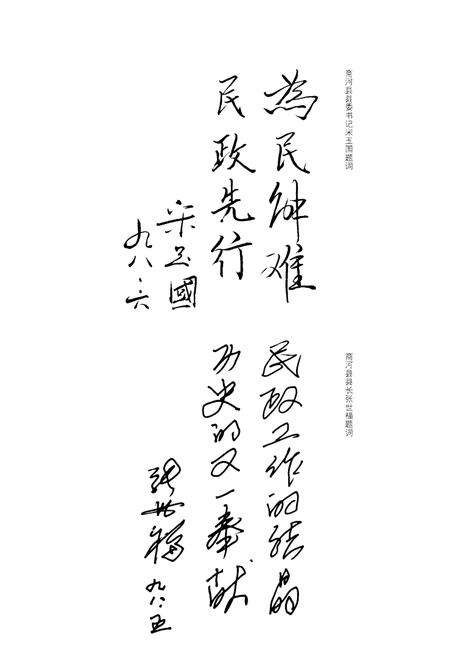 商河县县委书记宋玉国题词
為民解难
民政先行
宋玉國
九八·六
商河县县长张世福题词
民政工作的结晶
历史的又一奉献
张世福
九八·五